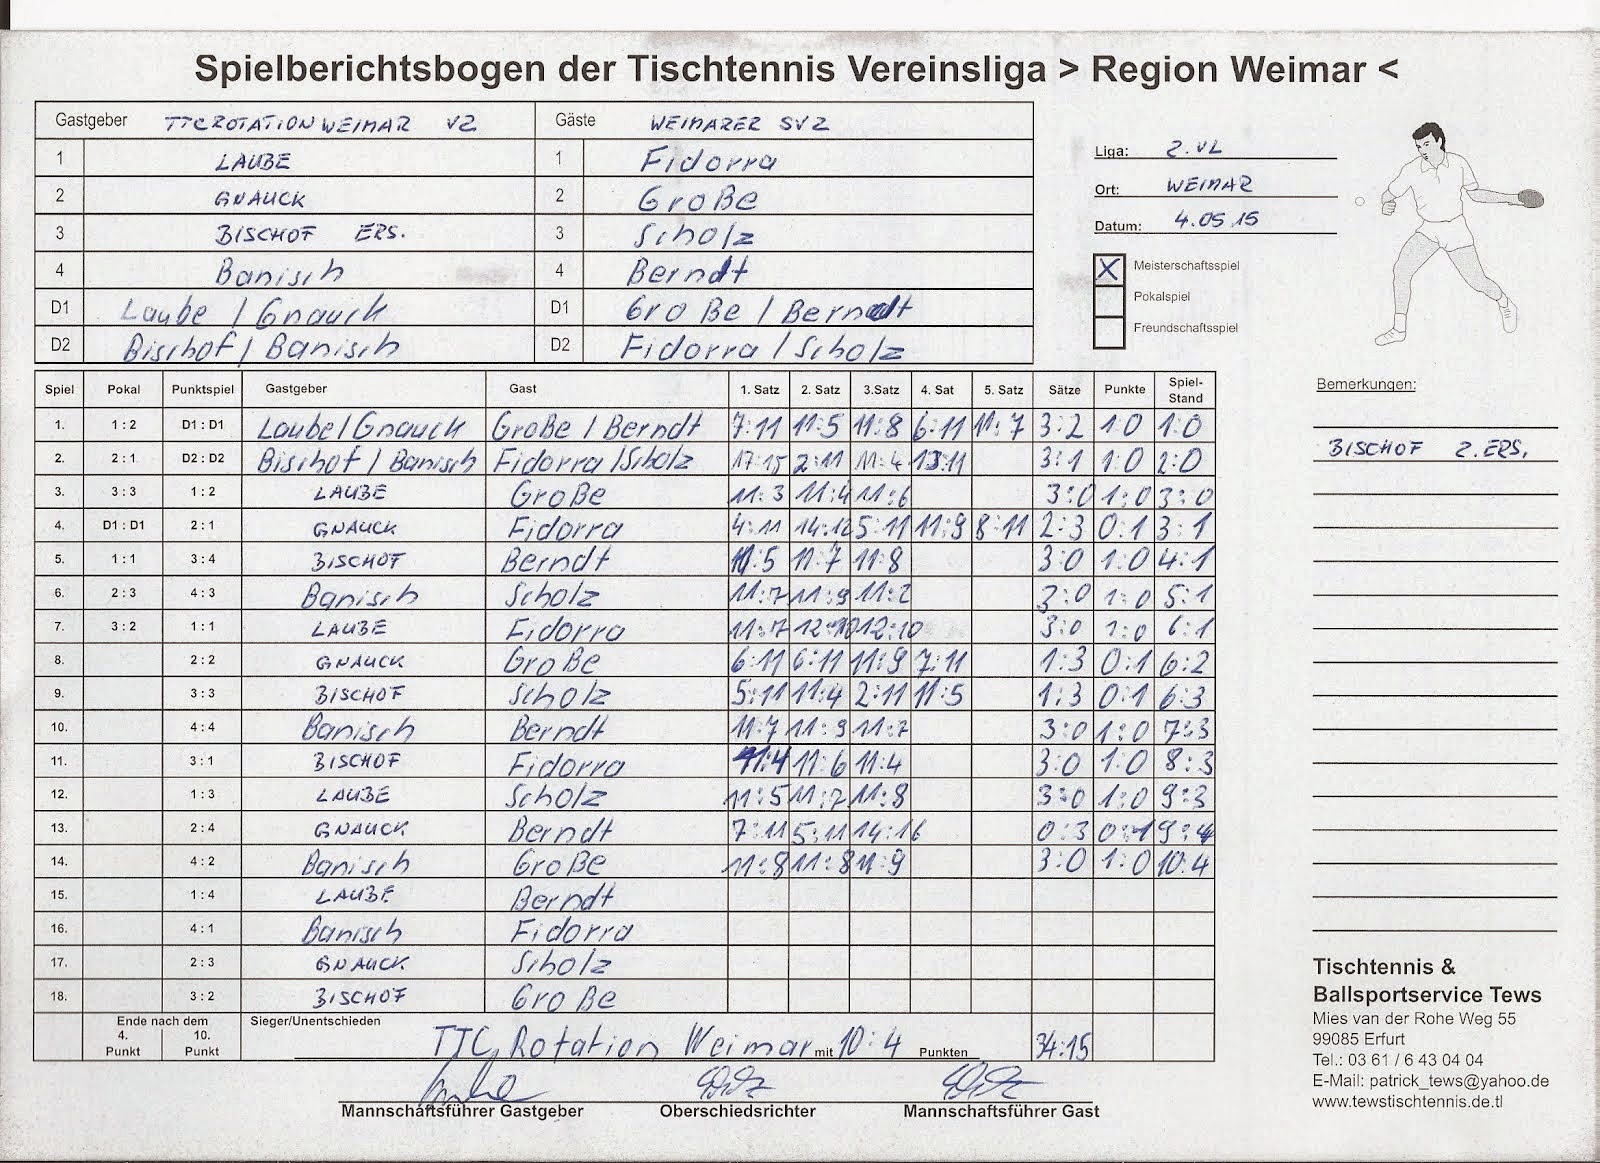 Spielberichtsbogen der Tischtennis Vereinsliga > Region Weimar <
Gastgeber TTC ROTATION WEIMAR V2 Gäste WEIMARER SV 2
1 LAUBE 1 Fidorra
2 GNAUCK 2 Große
3 BISCHOF ERS. 3 Scholz
4 Banisch 4 Berndt
D1 Laube / Gnauck D1 Große / Berndt
D2 Bischof / Banisch D2 Fidorra / Scholz
Liga: 2. VL
Ort: WEIMAR
Datum: 4.05.15
X Meisterschaftsspiel
Pokalspiel
Freundschaftsspiel
Spiel Pokal Punktspiel Gastgeber Gast 1. Satz 2. Satz 3.Satz 4. Sat 5. Satz Sätze Punkte Spiel-Stand
1. 1 : 2 D1 : D1 Laube / Gnauck Große / Berndt 7:11 11:5 11:8 6:11 11:7 3:2 1:0 1:0
2. 2 : 1 D2 : D2 Bischof / Banisch Fidorra / Scholz 17:15 2:11 11:4 13:11 3:1 1:0 2:0
3. 3 : 3 1 : 2 LAUBE Große 11:3 11:4 11:6 3:0 1:0 3:0
4. D1 : D1 2 : 1 GNAUCK Fidorra 4:11 14:12 5:11 11:9 8:11 2:3 0:1 3:1
5. 1 : 1 3 : 4 BISCHOF Berndt 11:5 11:7 11:8 3:0 1:0 4:1
6. 2 : 3 4 : 3 Banisch Scholz 11:7 11:9 11:2 3:0 1:0 5:1
7. 3 : 2 1 : 1 LAUBE Fidorra 11:7 12:10 12:10 3:0 1:0 6:1
8. 2 : 2 GNAUCK Große 6:11 6:11 11:9 7:11 1:3 0:1 6:2
9. 3 : 3 BISCHOF Scholz 5:11 11:4 2:11 11:5 1:3 0:1 6:3
10. 4 : 4 Banisch Berndt 11:7 11:9 11:7 3:0 1:0 7:3
11. 3 : 1 BISCHOF Fidorra 11:4 11:6 11:4 3:0 1:0 8:3
12. 1 : 3 LAUBE Scholz 11:5 11:7 11:8 3:0 1:0 9:3
13. 2 : 4 GNAUCK Berndt 7:11 5:11 14:16 0:3 0:1 9:4
14. 4 : 2 Banisch Große 11:8 11:8 11:9 3:0 1:0 10:4
15. 1 : 4 LAUBE Berndt
16. 4 : 1 Banisch Fidorra
17. 2 : 3 GNAUCK Scholz
18. 3 : 2 BISCHOF Große
Ende nach dem 4. Punkt 10. Punkt Sieger/Unentschieden TTC Rotation Weimar mit 10:4 Punkten 34:15
Mannschaftsführer Gastgeber Oberschiedsrichter Mannschaftsführer Gast
Bemerkungen:
BISCHOF 2. ERS.
Tischtennis &
Ballsportservice Tews
Mies van der Rohe Weg 55
99085 Erfurt
Tel.: 03 61 / 6 43 04 04
E-Mail: patrick_tews@yahoo.de
www.tewstischtennis.de.tl